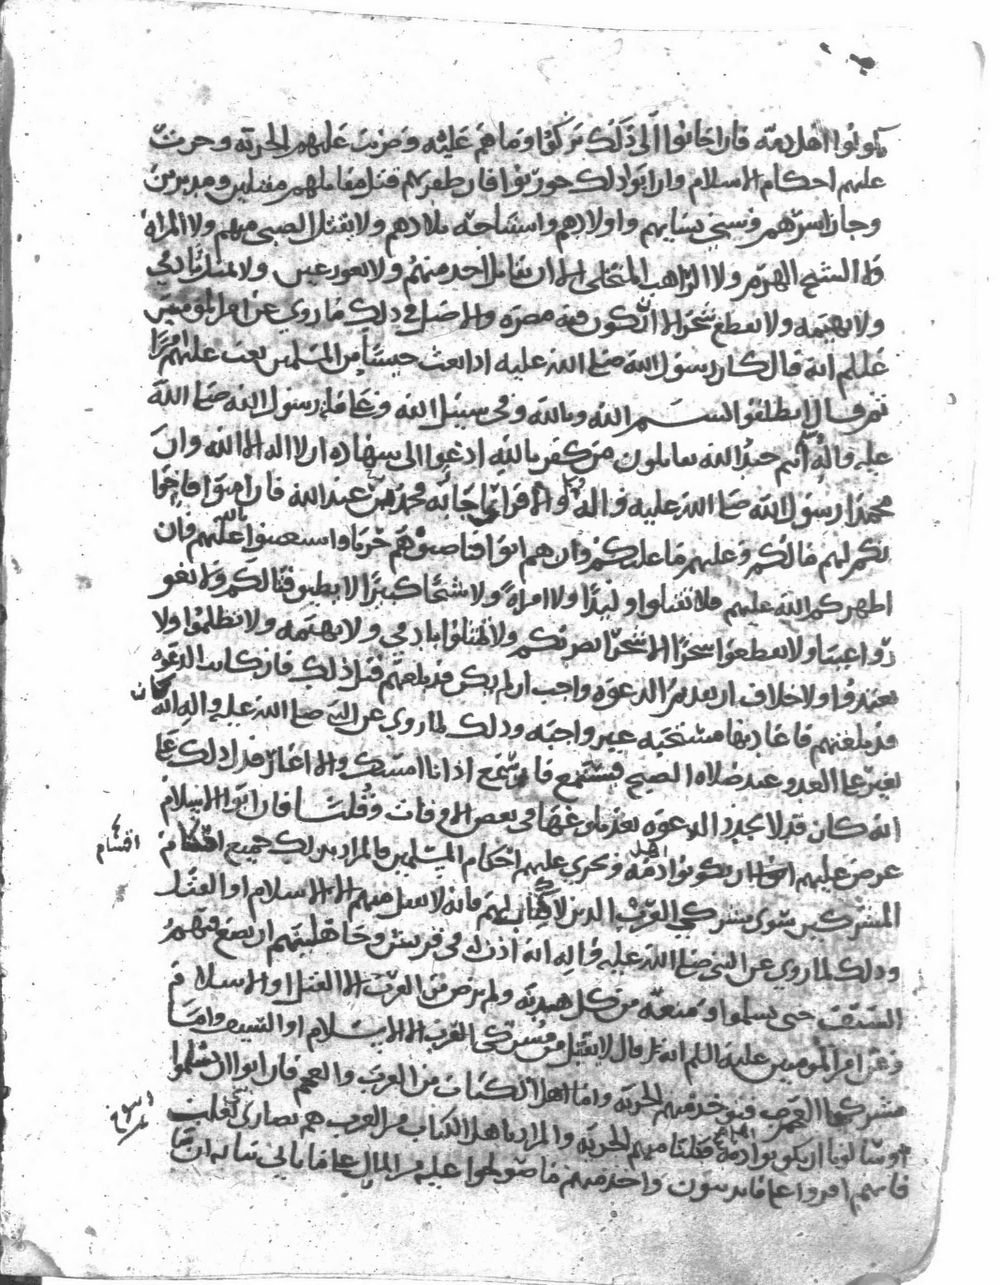 يكونوا اهل ذمة فان اجابوا الى ذلك تركوا وما هم عليه وضربت عليهم الجزية وجرت
عليهم احكام الاسلام وان ابوا ذلك حوربوا فان ظفر بهم قتل مقاتلهم مقبلين ومدبرين
وجاز اسرهم وسبي نسايهم واولادهم واستباحة بلادهم ولا يقتل الصبي منهم ولا المراة
ولا الشيخ الهرم ولا الراهب المتخلي الا ان يقاتل احد منهم ولا يعور عين ولا يمثل بادمي
ولا بهيمة ولا يقطع شجرا الا ان يكون فيه مضرة والاصل في ذلك ما روي عن امير المومنين
عليلم انه قال كان رسول الله صلى الله عليه اذا بعث جيشا من المسلمين بعث عليهم اميرا
ثم قال انطلقوا بسم الله وبالله وفي سبيل الله وعلى ملة رسول الله صلى الله
عليه واله انتم جند الله تقاتلون من كفر بالله ادعوا الى شهادة ان لا اله الا الله وان
محمدا رسول الله صلى الله عليه واله والاقرار بما جا به محمد من عند الله فان امنوا فاخوا
نكم لهم ما لكم وعليهم ما عليكم وان هم ابوا فناصبوهم حربا واستعينوا بالله عليهم فان
اظهركم الله عليهم فلا تقتلوا وليدا ولا امراة ولا شيخا كبيرا لا يطيق قتالكم ولا تغو
روا عينا ولا تقطعوا شجرا الا شجرا يضر بكم ولا تمثلوا بادمي ولا بهيمة ولا تظلموا ولا
تعتدوا ولا خلاف ان تقديم الدعوة واجب ان لم يكن قد بلغتهم قبل ذلك فان كانت الدعوة
قد بلغتهم فاعادتها مستحبة غير واجبة وذلك لما روي عن النبي صلى الله عليه واله انه كان
يغير على العدو عند صلاة الصبح فيستمع فان سمع اذانا امسك والا اغار فدل ذلك على
انه كان قد لا يجدد الدعوة بعد بلوغها في بعض الاوقات وقلنا فان ابوا الاسلام
عرض عليهم ان يكونوا اهل ذمة وتجري عليهم احكام المسلمين فالمراد بذلك جميع اقسام
اقسام
المشركين سوى مشركي العرب الذين لا كتاب لهم فانه لا يقبل منهم الا الاسلام او القتل
وذلك لما روي عن النبي صلى الله عليه واله انه اذن له في قريش وجاهليتهم ان يضع فيهم
السيف حتى يسلموا ومنعه من كل هدية ولم يرض من العرب الا القتل او الاسلام
وعن امير المومنين عليه السلم انه قال لا يقبل من مشركي العرب الا الاسلام او السيف واما
مشركوا العجم فتوخذ منهم الجزية واما اهل الكتاب من العرب والعجم فان ابوا ان يسلموا
او سالونا ان يكونوا اهل ذمة قبلنا منهم الجزية والمراد باهل الكتاب من العرب هم نصارى تغلب
فانهم اقروا على ما يدينون واخذ منهم ما صولحوا عليه من المال على ما ياتي بيانه ان شا